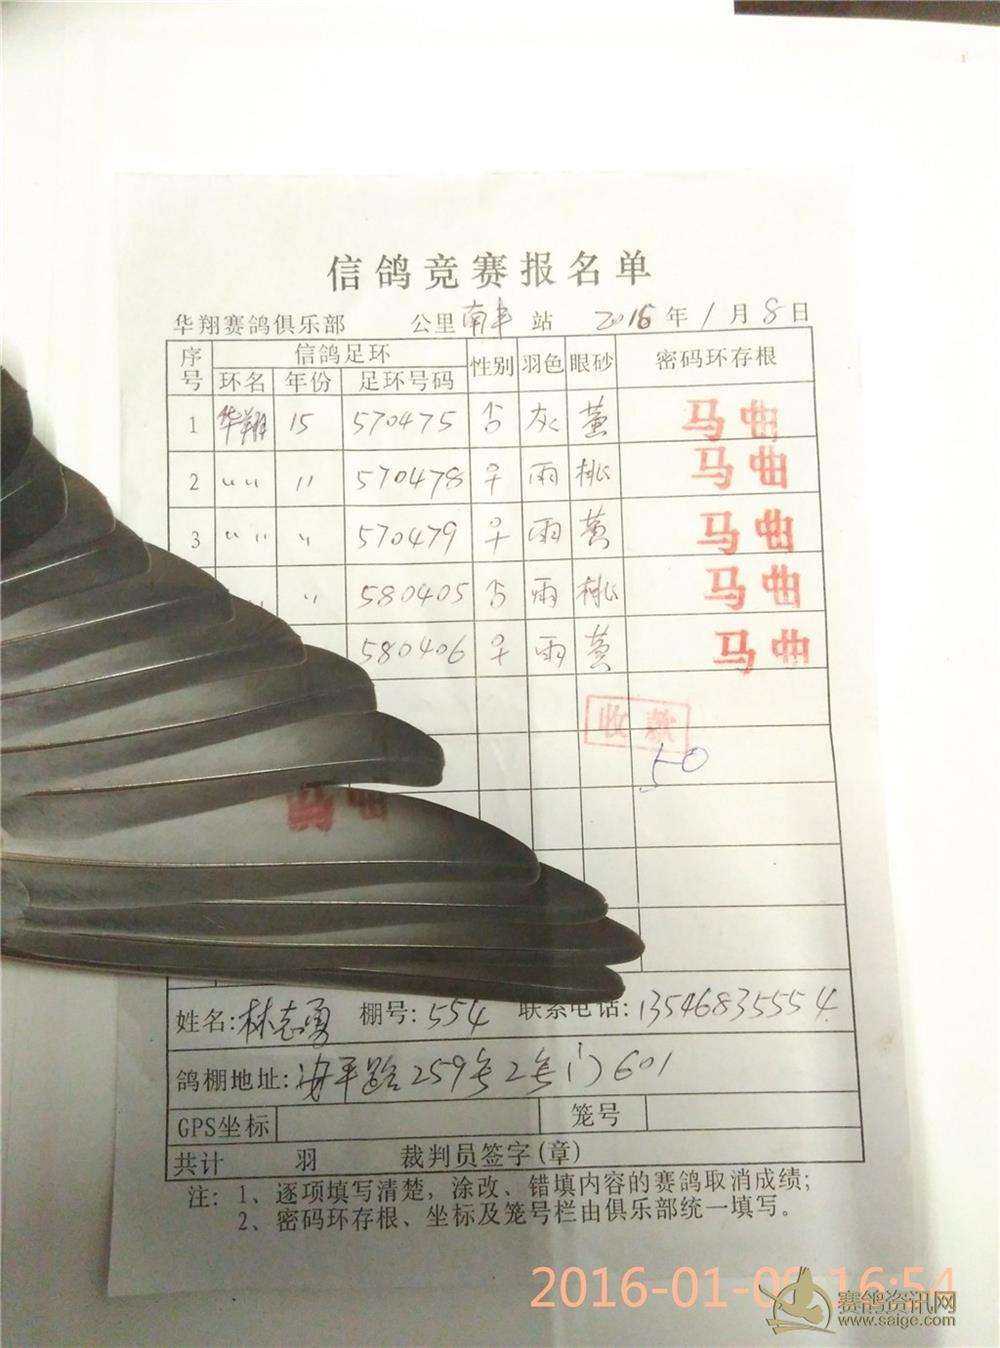 信鸽竞赛报名单
华翔赛鸽俱乐部 公里 南丰 站 2016 年 1 月 8 日
序号 信鸽足环 性别 羽色 眼砂 密码环存根
环名 年份 足环号码
1 华翔 15 570475 ♂ 灰 黄 马曲
2 〃〃 〃 570478 ♀ 雨 桃 马曲
3 〃〃 〃 570479 ♀ 雨 黄 马曲
〃 〃 580405 ♂ 雨 桃 马曲
580406 ♀ 雨 黄 马曲
收款
50
马曲
姓名:林志勇 棚号:554 联系电话:13546835554
鸽棚地址:海平路259号2号门601
GPS坐标 笼号
共计 羽 裁判员签字(章)
注: 1、逐项填写清楚，涂改、错填内容的赛鸽取消成绩;
2、密码环存根、坐标及笼号栏由俱乐部统一填写。
2016-01-09 16:54
赛鸽资讯网
www.saige.com